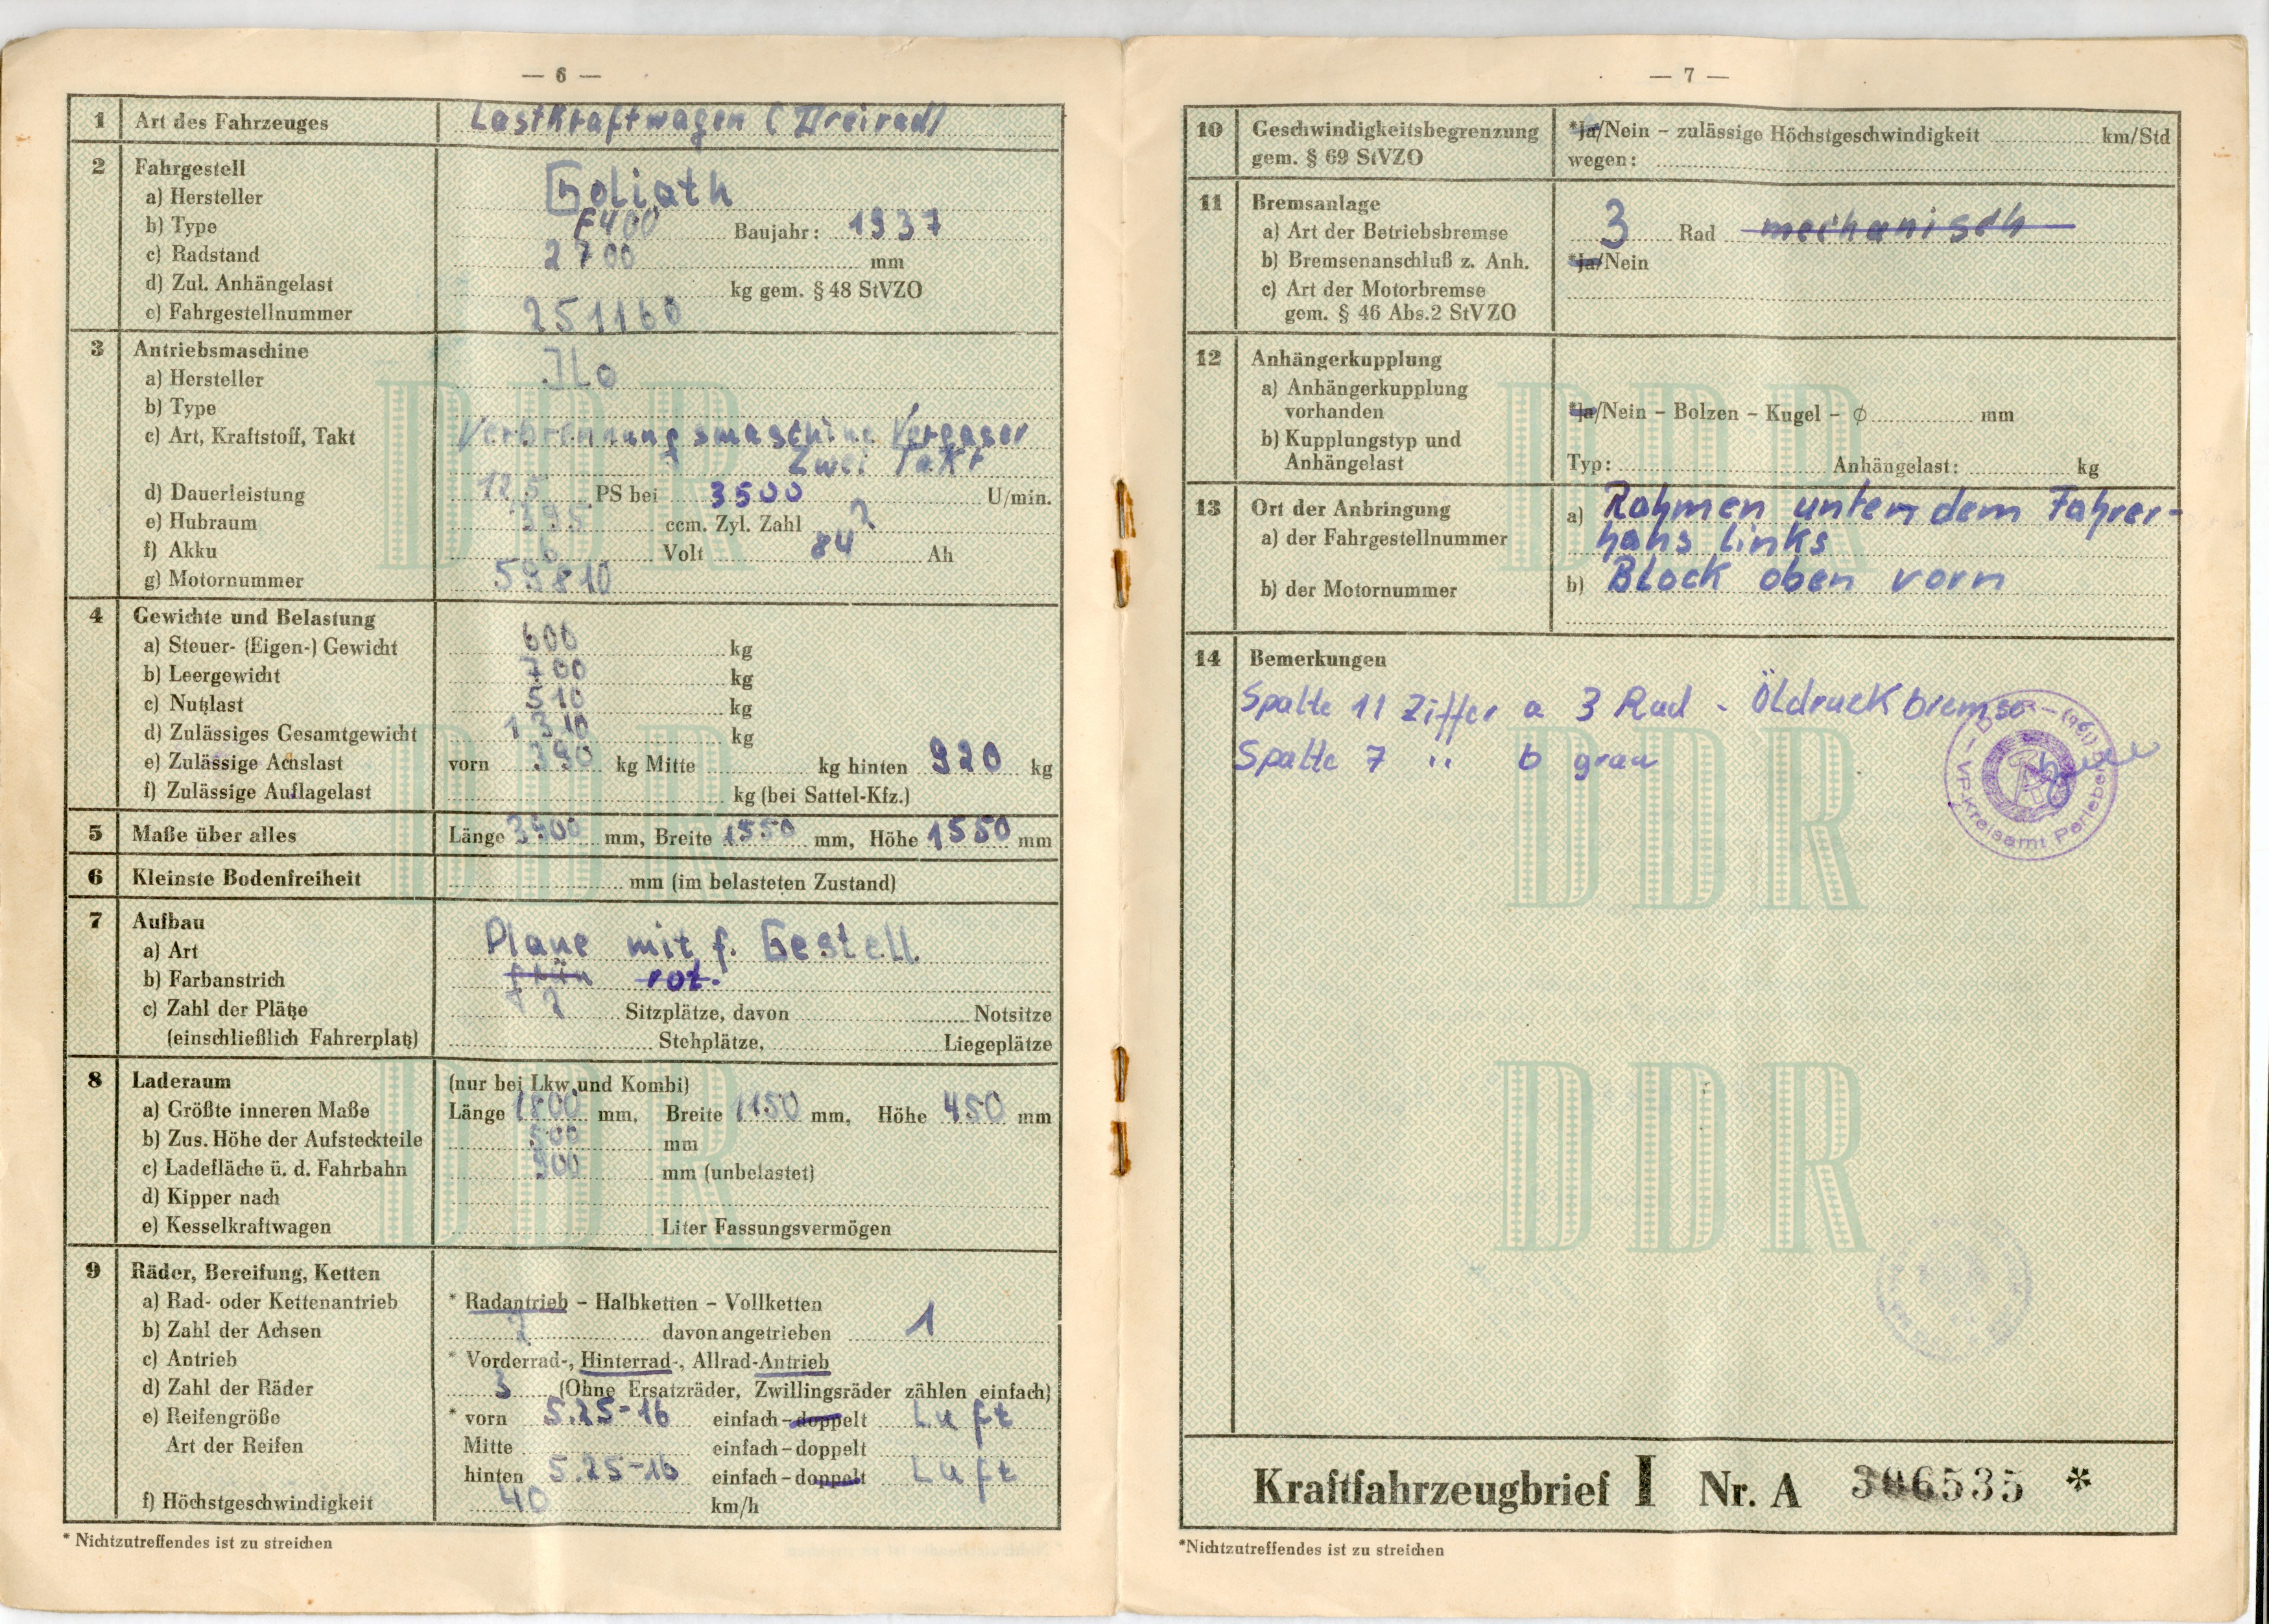 — 6 —
1 Art des Fahrzeuges Lastkraftwagen (Dreirad)
2 Fahrgestell
a) Hersteller Goliath
b) Type F400 Baujahr: 1937
c) Radstand 2700 mm
d) Zul. Anhängelast kg gem. § 48 StVZO
e) Fahrgestellnummer 251160
3 Antriebsmaschine
a) Hersteller JLO
b) Type
c) Art, Kraftstoff, Takt Verbrennungsmaschine Vergaser
Zwei Takt
d) Dauerleistung 12,5 PS bei 3500 U/min.
e) Hubraum 395 ccm. Zyl. Zahl 2
f) Akku 6 Volt 84 Ah
g) Motornummer 59810
4 Gewichte und Belastung
a) Steuer- (Eigen-) Gewicht 600 kg
b) Leergewicht 700 kg
c) Nutzlast 510 kg
d) Zulässiges Gesamtgewicht 1310 kg
e) Zulässige Achslast vorn 390 kg Mitte kg hinten 920 kg
f) Zulässige Auflagelast kg (bei Sattel-Kfz.)
5 Maße über alles Länge 3900 mm, Breite 1550 mm, Höhe 1550 mm
6 Kleinste Bodenfreiheit mm (im belasteten Zustand)
7 Aufbau
a) Art Plane mit f. Gestell
b) Farbanstrich grün rot.
c) Zahl der Plätze 2 Sitzplätze, davon Notsitze
(einschließlich Fahrerplatz) Stehplätze, Liegeplätze
8 Laderaum (nur bei Lkw und Kombi)
a) Größte inneren Maße Länge 1800 mm, Breite 1150 mm, Höhe 450 mm
b) Zus. Höhe der Aufsteckteile 500 mm
c) Ladefläche ü. d. Fahrbahn 900 mm (unbelastet)
d) Kipper nach
e) Kesselkraftwagen Liter Fassungsvermögen
9 Räder, Bereifung, Ketten
a) Rad- oder Kettenantrieb * Radantrieb – Halbketten – Vollketten
b) Zahl der Achsen 2 davon angetrieben 1
c) Antrieb * Vorderrad-, Hinterrad-, Allrad-Antrieb
d) Zahl der Räder 3 (Ohne Ersatzräder, Zwillingsräder zählen einfach)
e) Reifengröße * vorn 5.25-16 einfach – doppelt Luft
Art der Reifen Mitte einfach – doppelt
hinten 5.25-16 einfach – doppelt Luft
f) Höchstgeschwindigkeit 40 km/h
* Nichtzutreffendes ist zu streichen
— 7 —
10 Geschwindigkeitsbegrenzung *Ja/Nein – zulässige Höchstgeschwindigkeit km/Std
gem. § 69 StVZO wegen:
11 Bremsanlage
a) Art der Betriebsbremse 3 Rad mechanisch
b) Bremsenanschluß z. Anh. *Ja/Nein
c) Art der Motorbremse
gem. § 46 Abs. 2 StVZO
12 Anhängerkupplung
a) Anhängerkupplung
vorhanden *Ja/Nein – Bolzen – Kugel – ϕ mm
b) Kupplungstyp und
Anhängelast Typ: Anhängelast: kg
13 Ort der Anbringung a) Rahmen unter dem Fahrer-
a) der Fahrgestellnummer haus links
b) der Motornummer b) Block oben vorn
14 Bemerkungen
Spalte 11 Ziffer a 3 Rad - Öldruckbremse
Spalte 7 " b grau
VP-Kreisamt Perleberg
DDR
Kraftfahrzeugbrief I Nr. A 306535 *
*Nichtzutreffendes ist zu streichen